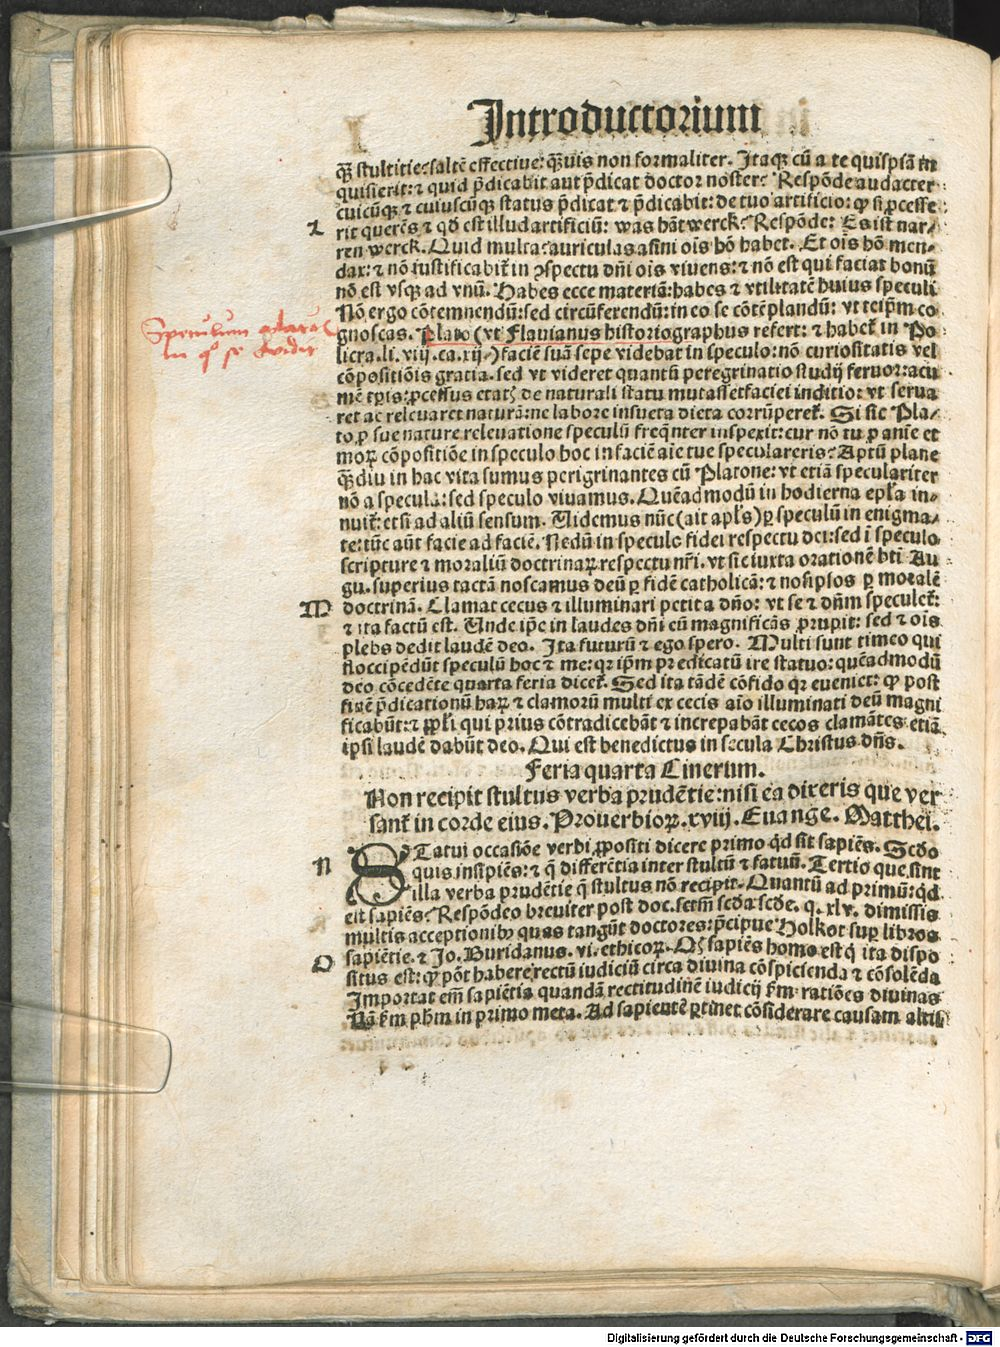 Introductorium
q̃ʒ stultitie: saltē effectiue: q̃uis non formaliter. Itaqʒ cū a te quispiā in
quisierit: ⁊ quid p̄dicabit aut p̄dicat doctor noster: Respōde audacter
cuicūqʒ ⁊ cuiuscūqʒ status p̄dicat ⁊ p̄dicabit: de tuo artificio: ꝙ si ꝓcesse
L
rit querēs ⁊ qd̄ est illud artificiū: was hāt werck: Respōde: Es ist nar⸗
ren werck. Quid multa: auriculas asini ois hō habet. Et ois hō men⸗
dax: ⁊ nō iustificabit̃ in ꝯspectu dn̄i ois viuens: ⁊ nō est qui faciat bonū
nō est vsqʒ ad vnū. Habes ecce materiā: habes ⁊ vtilitatē huius speculi
Nō ergo cōtemnendū: sed circūferendū: in eo se cōtēplandū: vt teip̄m co
Speculum
in qͦ se vidit
gnoscas. Plato (vt Flauianus historiographus refert: ⁊ habet̃ in Po
licra. li. viij. ca. xij.) faciē suā sepe videbat in speculo: nō curiositatis vel
cōpositiōis gratia. sed vt videret quantū peregrinatio studij feruor: acu
mē tp̄is: ꝓcessus etatꝭ de naturali statu mutasset faciei inditio: vt serua
ret ac releuaret naturā: ne labore insueta dieta corrūperet̃. Si sic Pla⸗
to ꝓ sue nature releuatione speculū freq̄nter inspexit: cur nō tu ꝓ anīe et
moꝝ cōpositiōe in speculo hoc in faciē aīe tue speculareris: Aptū plane
q̄ʒdiu in hac vita sumus perigrinantes cū Platone: vt etiā speculariter
nō a specula: sed speculo viuamus. Quēadmodū in hodierna ep̄la in⸗
nuit̃: etsi ad aliū sensum. Videmus nūc (ait apl̄s) ꝑ speculū in enigma⸗
te: tūc aūt facie ad faciē. Nedū in speculo fidei respectu dei: sed ī speculo
scripture ⁊ moraliū doctrinaꝝ respectu nr̄i. vt sic iuxta orationē bt̄i Au
gu. superius tactā noscamus deū ꝑ fidē catholicā: ⁊ nosip̄sos ꝑ moralē
M
doctrinā. Clamat cecus ⁊ illuminari petit a dn̄o: vt se ⁊ dn̄m speculet̃:
⁊ ita factū est. Unde ip̄e in laudes dn̄i eū magnificās ꝓrupit: sed ⁊ oīs
plebs dedit laudē deo. Ita futurū ⁊ ego spero. Multi sunt timeo qui
floccipēdūt speculū hoc ⁊ me: qꝛ ip̄m predicatū ire statuo: quēadmodū
deo cōcedēte quarta feria dicet̃. Sed ita tādē cōfido qꝛ eueniet: ꝙ post
finē p̄dicationū haꝝ ⁊ clamorū multi ex cecis aīo illuminati deū magni
ficabūt: ⁊ ppl̄i qui prius cōtradicebāt ⁊ increpabāt cecos clamātes etiā
ipsi laudē dabūt deo. Qui est benedictus in secula Christus dn̄s.
Feria quarta Cinerum.
Non recipit stultus verba prudētie: nisi ea dixeris que ver
sant̃ in corde eius. Prouerbioꝝ. xviij. Euange. Matthei.
N
STatui occasiōe verbi ꝓpositi dicere primo qd̄ sit sapiēs. Scd̄o
quis insipiēs: ⁊ q̄ differētia inter stultū ⁊ fatuū. Tertio que sint
illa verba prudētie q̄ stultus nō recipit. Quantū ad primū: qd̄
est sapiēs: Respōdeo breuiter post doc. setm̄ scd̄a scd̄e. q. xlv. dimissis
multis acceptionibꝰ quas tangūt doctores: p̄cipue Holkot suꝑ libros
O
sapiētie. ⁊ Jo. Buridanus. vi. ethicoꝝ. Oꝭ sapiēs homo est q̇ ita dispo
situs est: ꝙ pōt habere rectū iudiciū circa diuina cōspicienda ⁊ cōsolēda
Importat em̄ sapiētia quandā rectitudinē iudicij ẜm ratiōes diuinas
Nā ẜm ph̄m in primo meta. Ad sapientē ꝑtinet cōsiderare causam altis
Digitalisierung gefördert durch die Deutsche Forschungsgemeinschaft - DFG